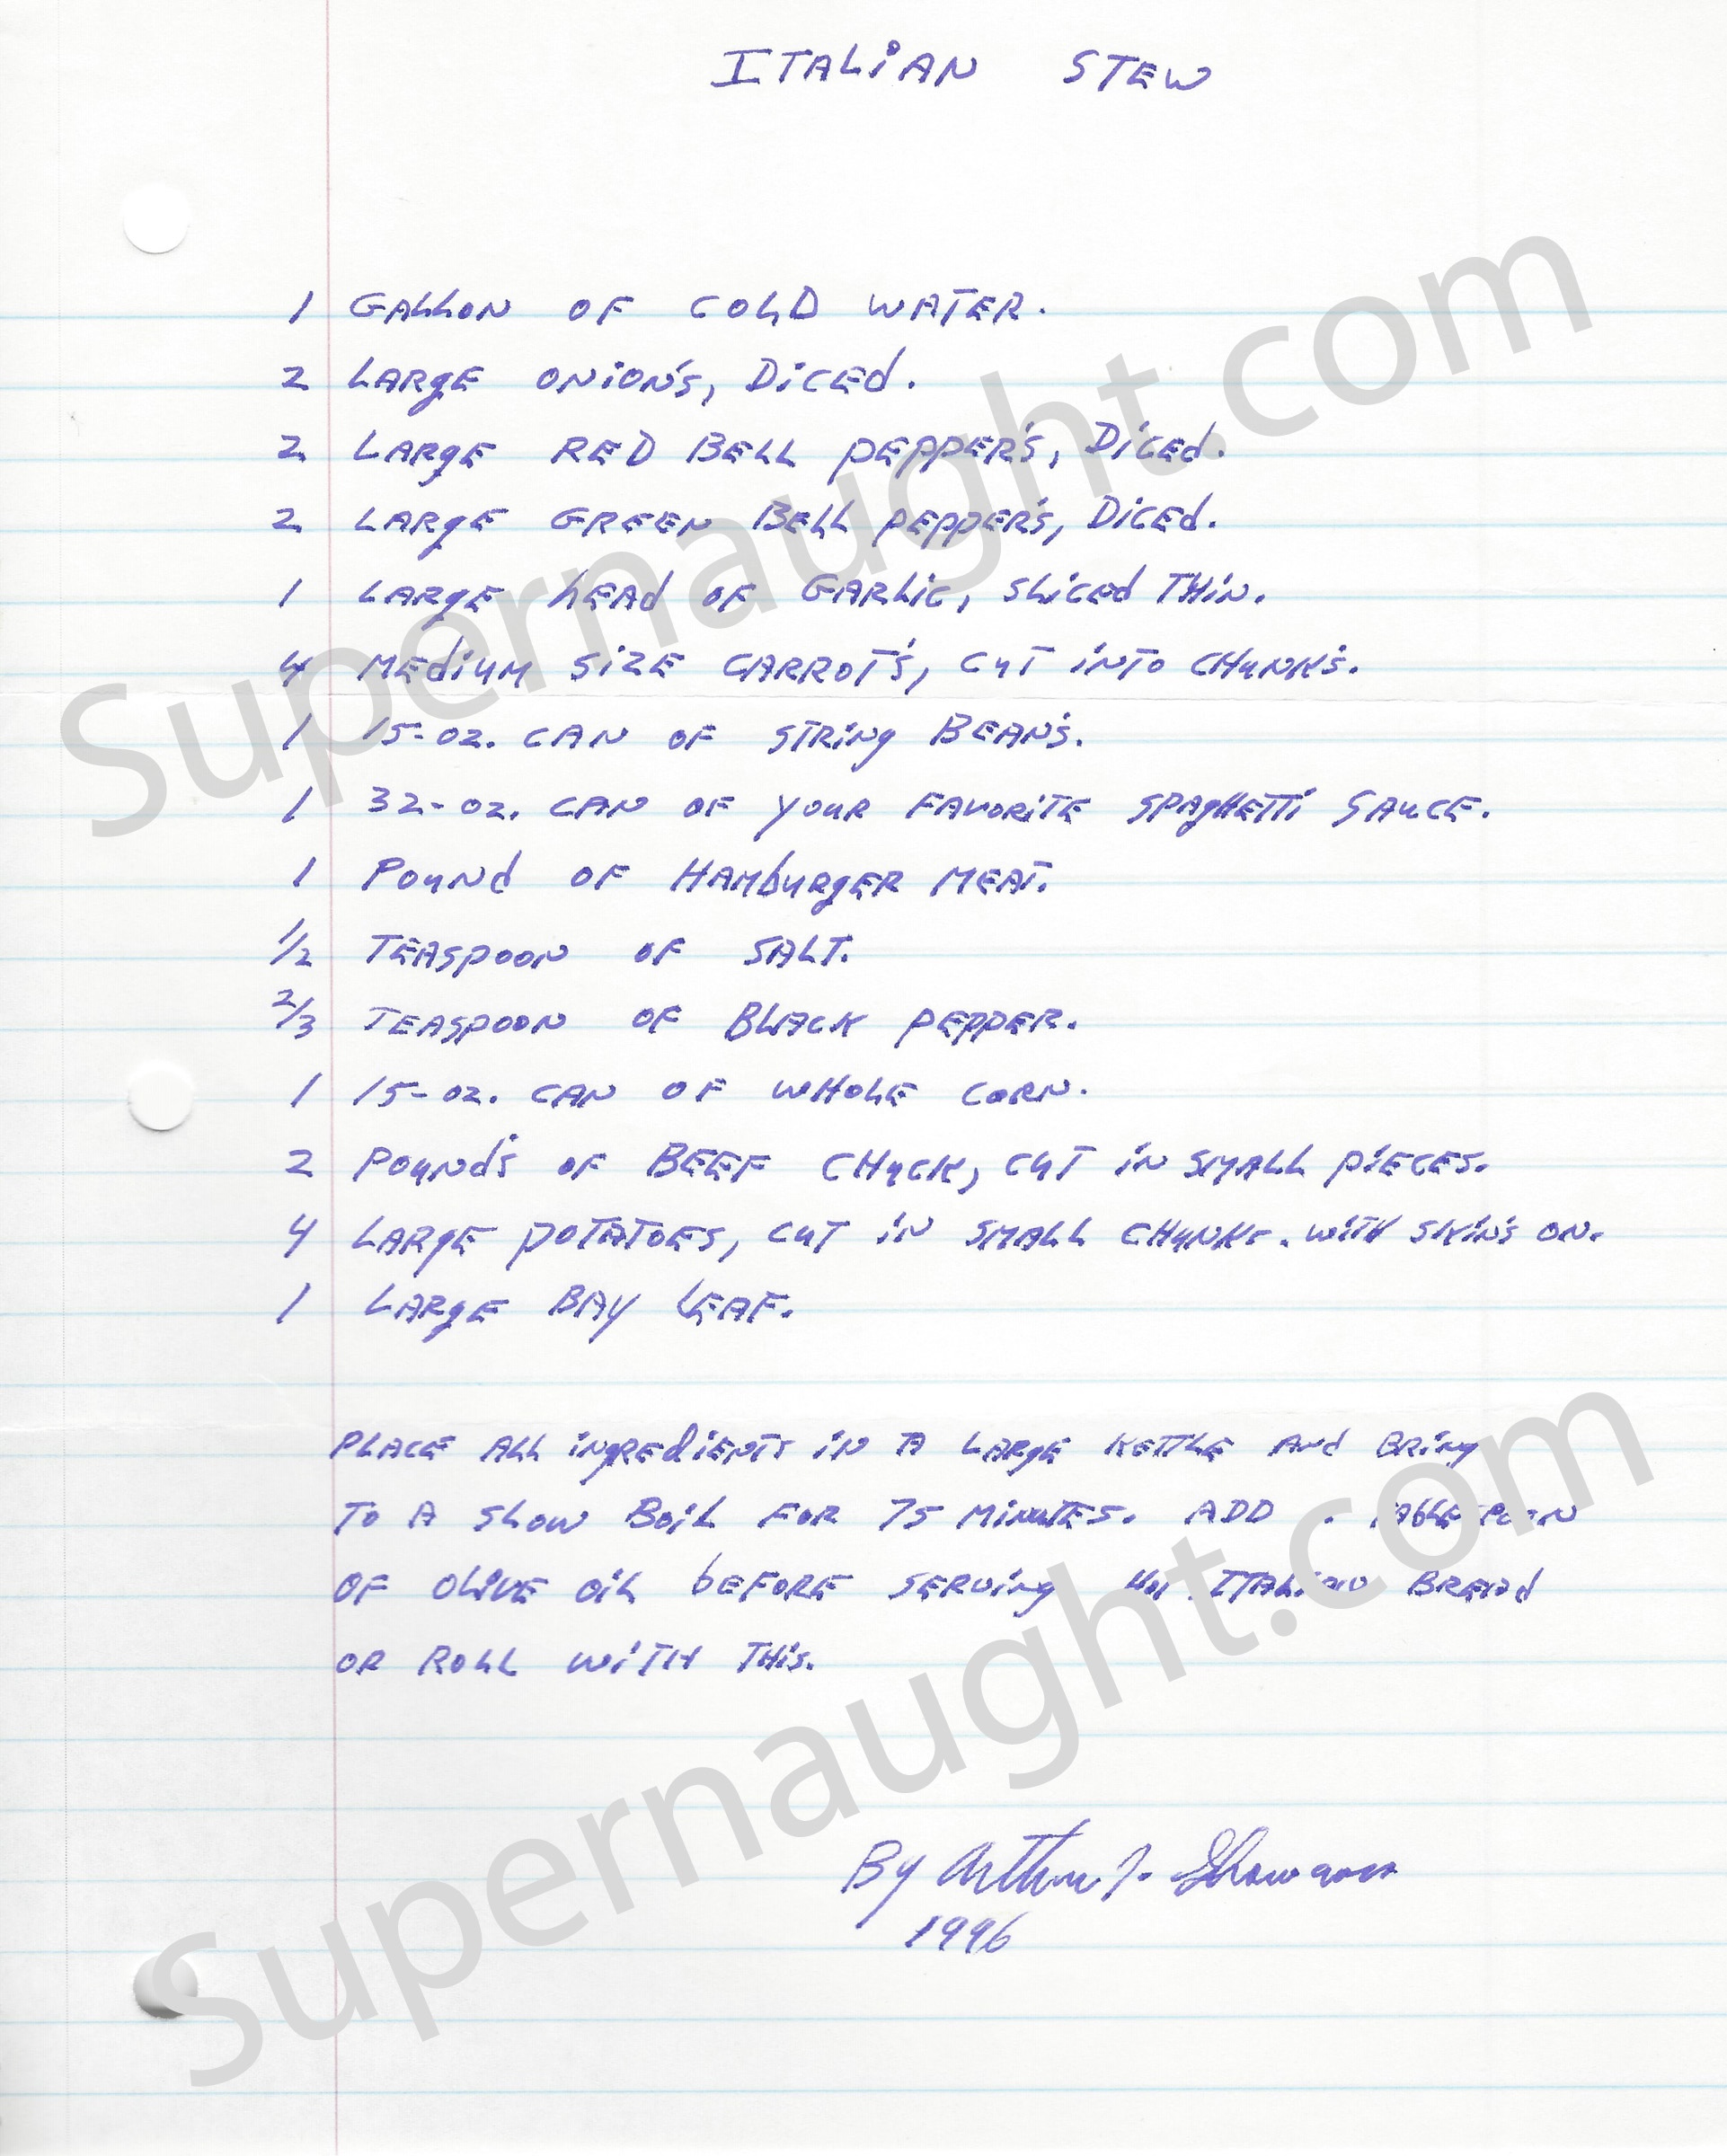 ITALIAN STEW
1 GALLON OF COLD WATER.
2 LARGE ONION'S, DICED.
2 LARGE RED BELL PEPPER'S, DICED.
2 LARGE GREEN BELL PEPPER'S, DICED.
1 LARGE HEAD OF GARLIC, SLICED THIN.
4 MEDIUM SIZE CARROT'S, CUT INTO CHUNK'S.
1 15-OZ. CAN OF STRING BEAN'S.
1 32-OZ. CAN OF YOUR FAVORITE SPAGHETTI SAUCE.
1 POUND OF HAMBURGER MEAT.
1/2 TEASPOON OF SALT.
2/3 TEASPOON OF BLACK PEPPER.
1 15-OZ. CAN OF WHOLE CORN.
2 POUND'S OF BEEF CHUCK, CUT IN SMALL PIECES.
4 LARGE POTATOES, CUT IN SMALL CHUNKS. WITH SKIN'S ON.
1 LARGE BAY LEAF.
PLACE ALL INGREDIENTS IN A LARGE KETTLE AND BRING
TO A SLOW BOIL FOR 75 MINUTES. ADD TABLESPOON
OF OLIVE OIL BEFORE SERVING ITALIAN BREAD
OR ROLL WITH THIS.
By Arthur J. Shawcross
1996
Supernaught.com
Supernaught.com